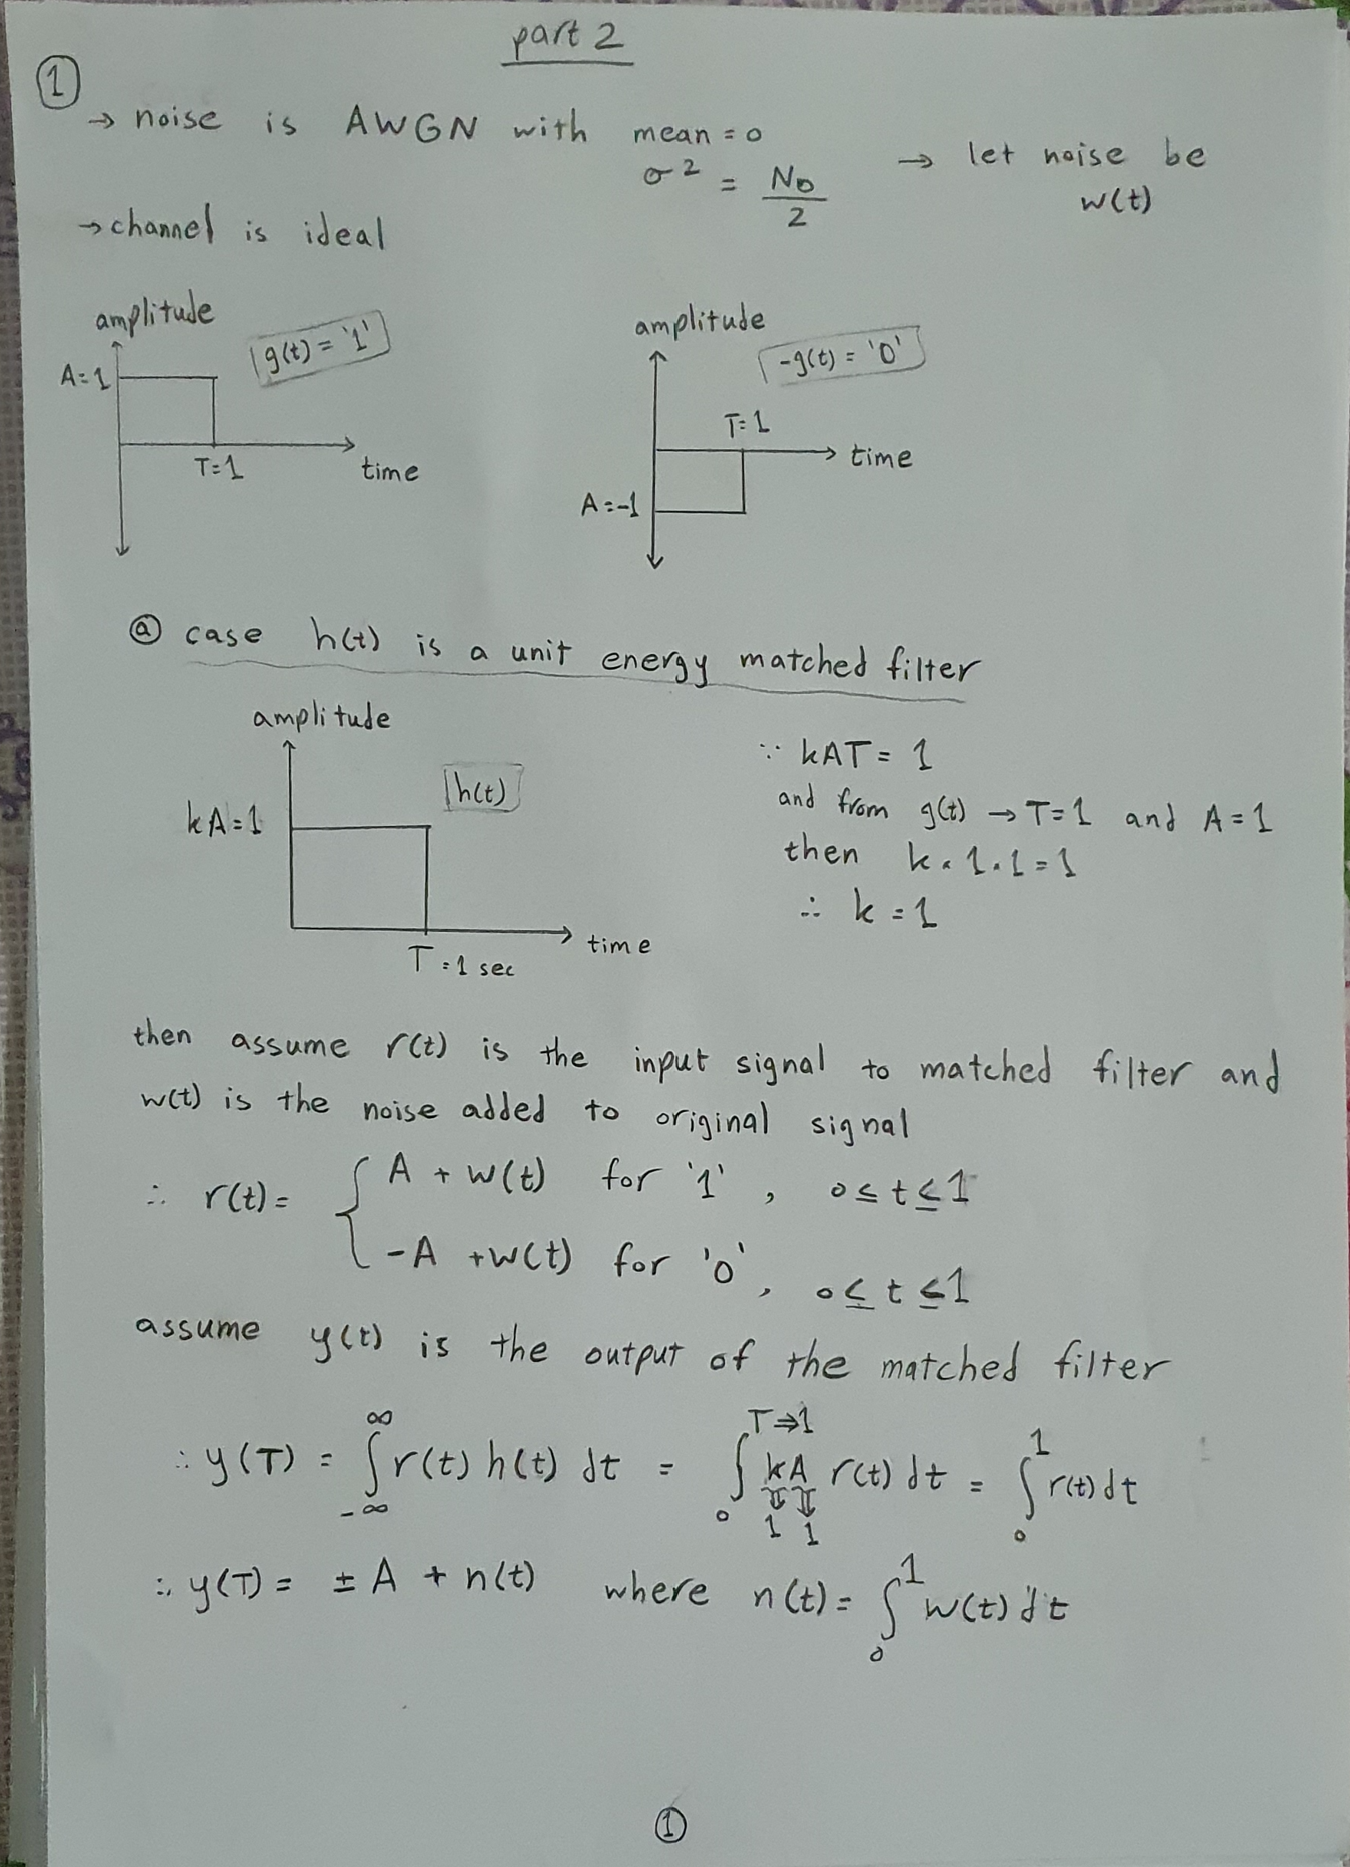 part 2
①
→ noise is AWGN with mean = 0
σ² = No/2
→ let noise be w(t)
→ channel is ideal
amplitude
g(t) = '1'
A=1
T=1
time
amplitude
-g(t) = '0'
T=1
time
A=-1
ⓐ case h(t) is a unit energy matched filter
amplitude
h(t)
kA=1
T=1 sec
time
∵ kAT = 1
and from g(t) → T=1 and A=1
then k×1×1=1
∴ k=1
then assume r(t) is the input signal to matched filter and
w(t) is the noise added to original signal
∴ r(t) = { A + w(t) for '1' , 0≤t≤1
-A +w(t) for '0' , 0≤t≤1
assume y(t) is the output of the matched filter
∴ y(T) = ∫_{-∞}^{∞} r(t) h(t) dt = ∫_0^{T⇒1} kA r(t) dt = ∫_0^1 r(t) dt
1 1
∴ y(T) = ± A + n(t) where n(t) = ∫_0^1 w(t) dt
①